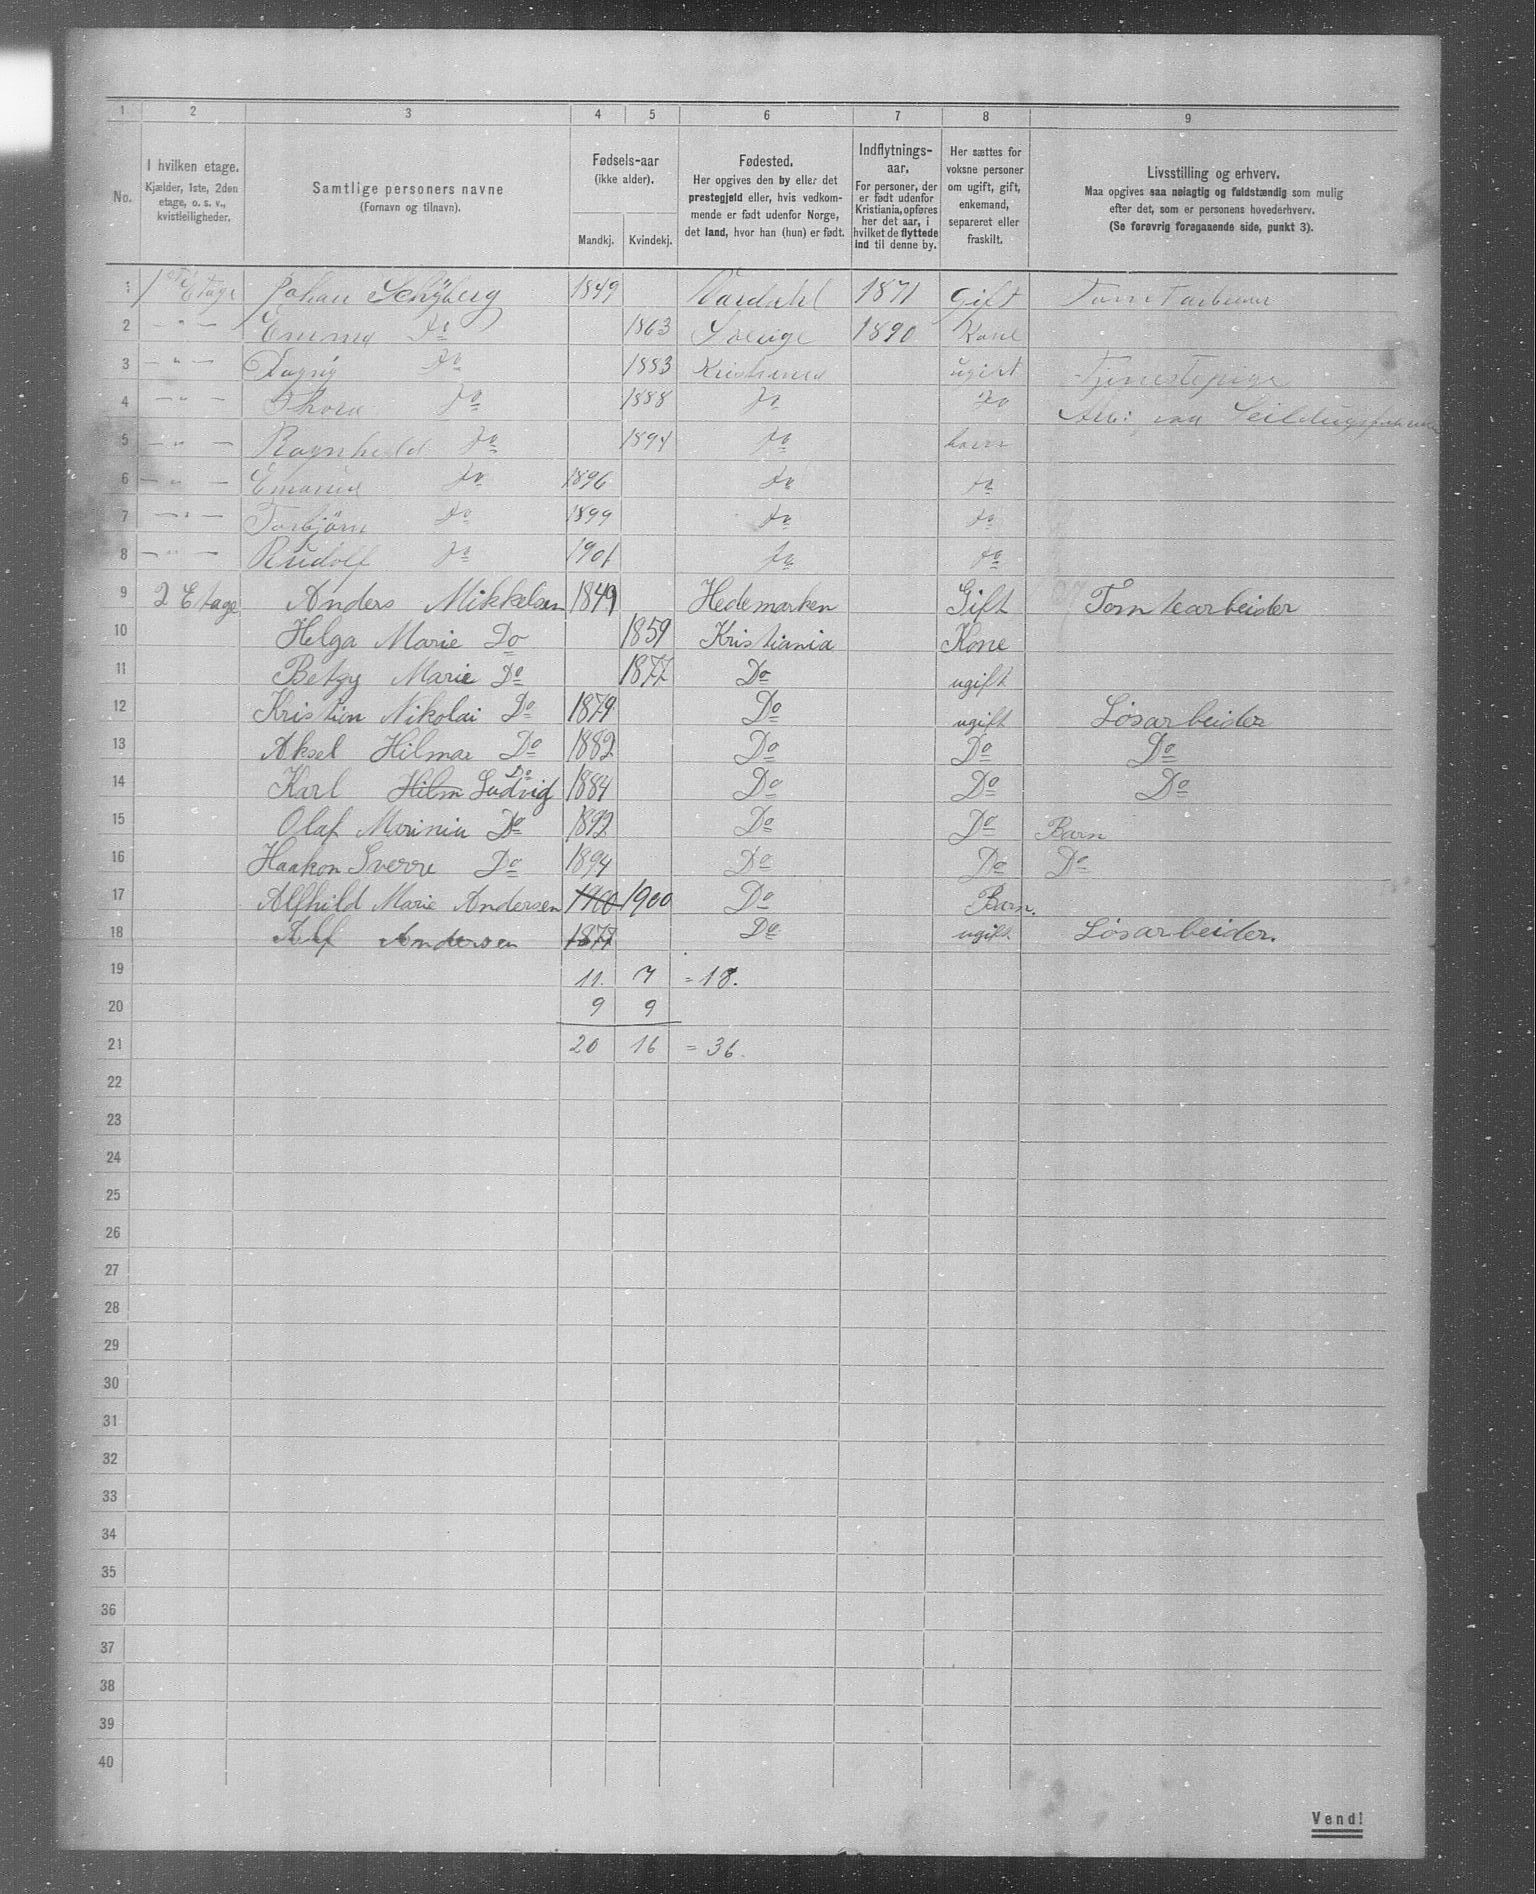 1 2 3 4 5 6 7 8 9
No. I hvilken etage. Kjælder, 1ste, 2den etage, o. s. v., kvistleiligheder. Samtlige personers navne (Fornavn og tilnavn). Fødsels-aar (ikke alder). Mandkj. Kvindekj. Fødested. Her opgives den by eller det prestegjeld eller, hvis vedkommende er født udenfor Norge, det land, hvor han (hun) er født. Indflytnings-aar. For personer, der er født udenfor Kristiania, opføres her det aar, i hvilket de flyttede ind til denne by. Her sættes for voksne personer om ugift, gift, enkemand, separeret eller fraskilt. Livsstilling og erhverv. Maa opgives saa nøiagtig og fuldstændig som mulig efter det, som er personens hovederhverv. (Se forøvrig foregaaende side, punkt 3).
1 1ste Etage Johan Schyberg 1849 Vardahl 1871 Gift
2 — " — Emma Do 1863 Sverige 1890 Kone
3 — " — Dagny Do 1883 Kristiania ugift Tjenestepige
4 — " — Thora Do 1888 Do Do
5 — " — Ragnhild Do 1894 Do barn
6 — " — Do 1896 Do Do
7 — " — Torbjørn Do 1899 Do Do
8 — " — Rudolf Do 1901 Do Do
9 2 Etage Anders Mikkelsen 1849 Hedemarken Gift Tomtearbeider
10 Helga Marie Do 1859 Kristiania Kone
11 Betzy Marie Do 1877 Do ugift
12 Kristian Nikolai Do 1879 Do ugift Løsarbeider
13 Aksel Hilmar Do 1882 Do Do Do
14 Karl Hilm Ludvig Do 1884 Do Do Do
15 Olaf Do 1892 Do Do Barn
16 Haakon Sverre Do 1894 Do Do Do
17 Alfhild Marie Andersen 1900 1900 Do Barn.
18 Alf Andersen 1877 Do ugift Løsarbeider.
19 11. 7 = 18.
20 9 9
21 20 16 = 36.
22
23
24
25
26
27
28
29
30
31
32
33
34
35
36
37
38
39
40
Vend!